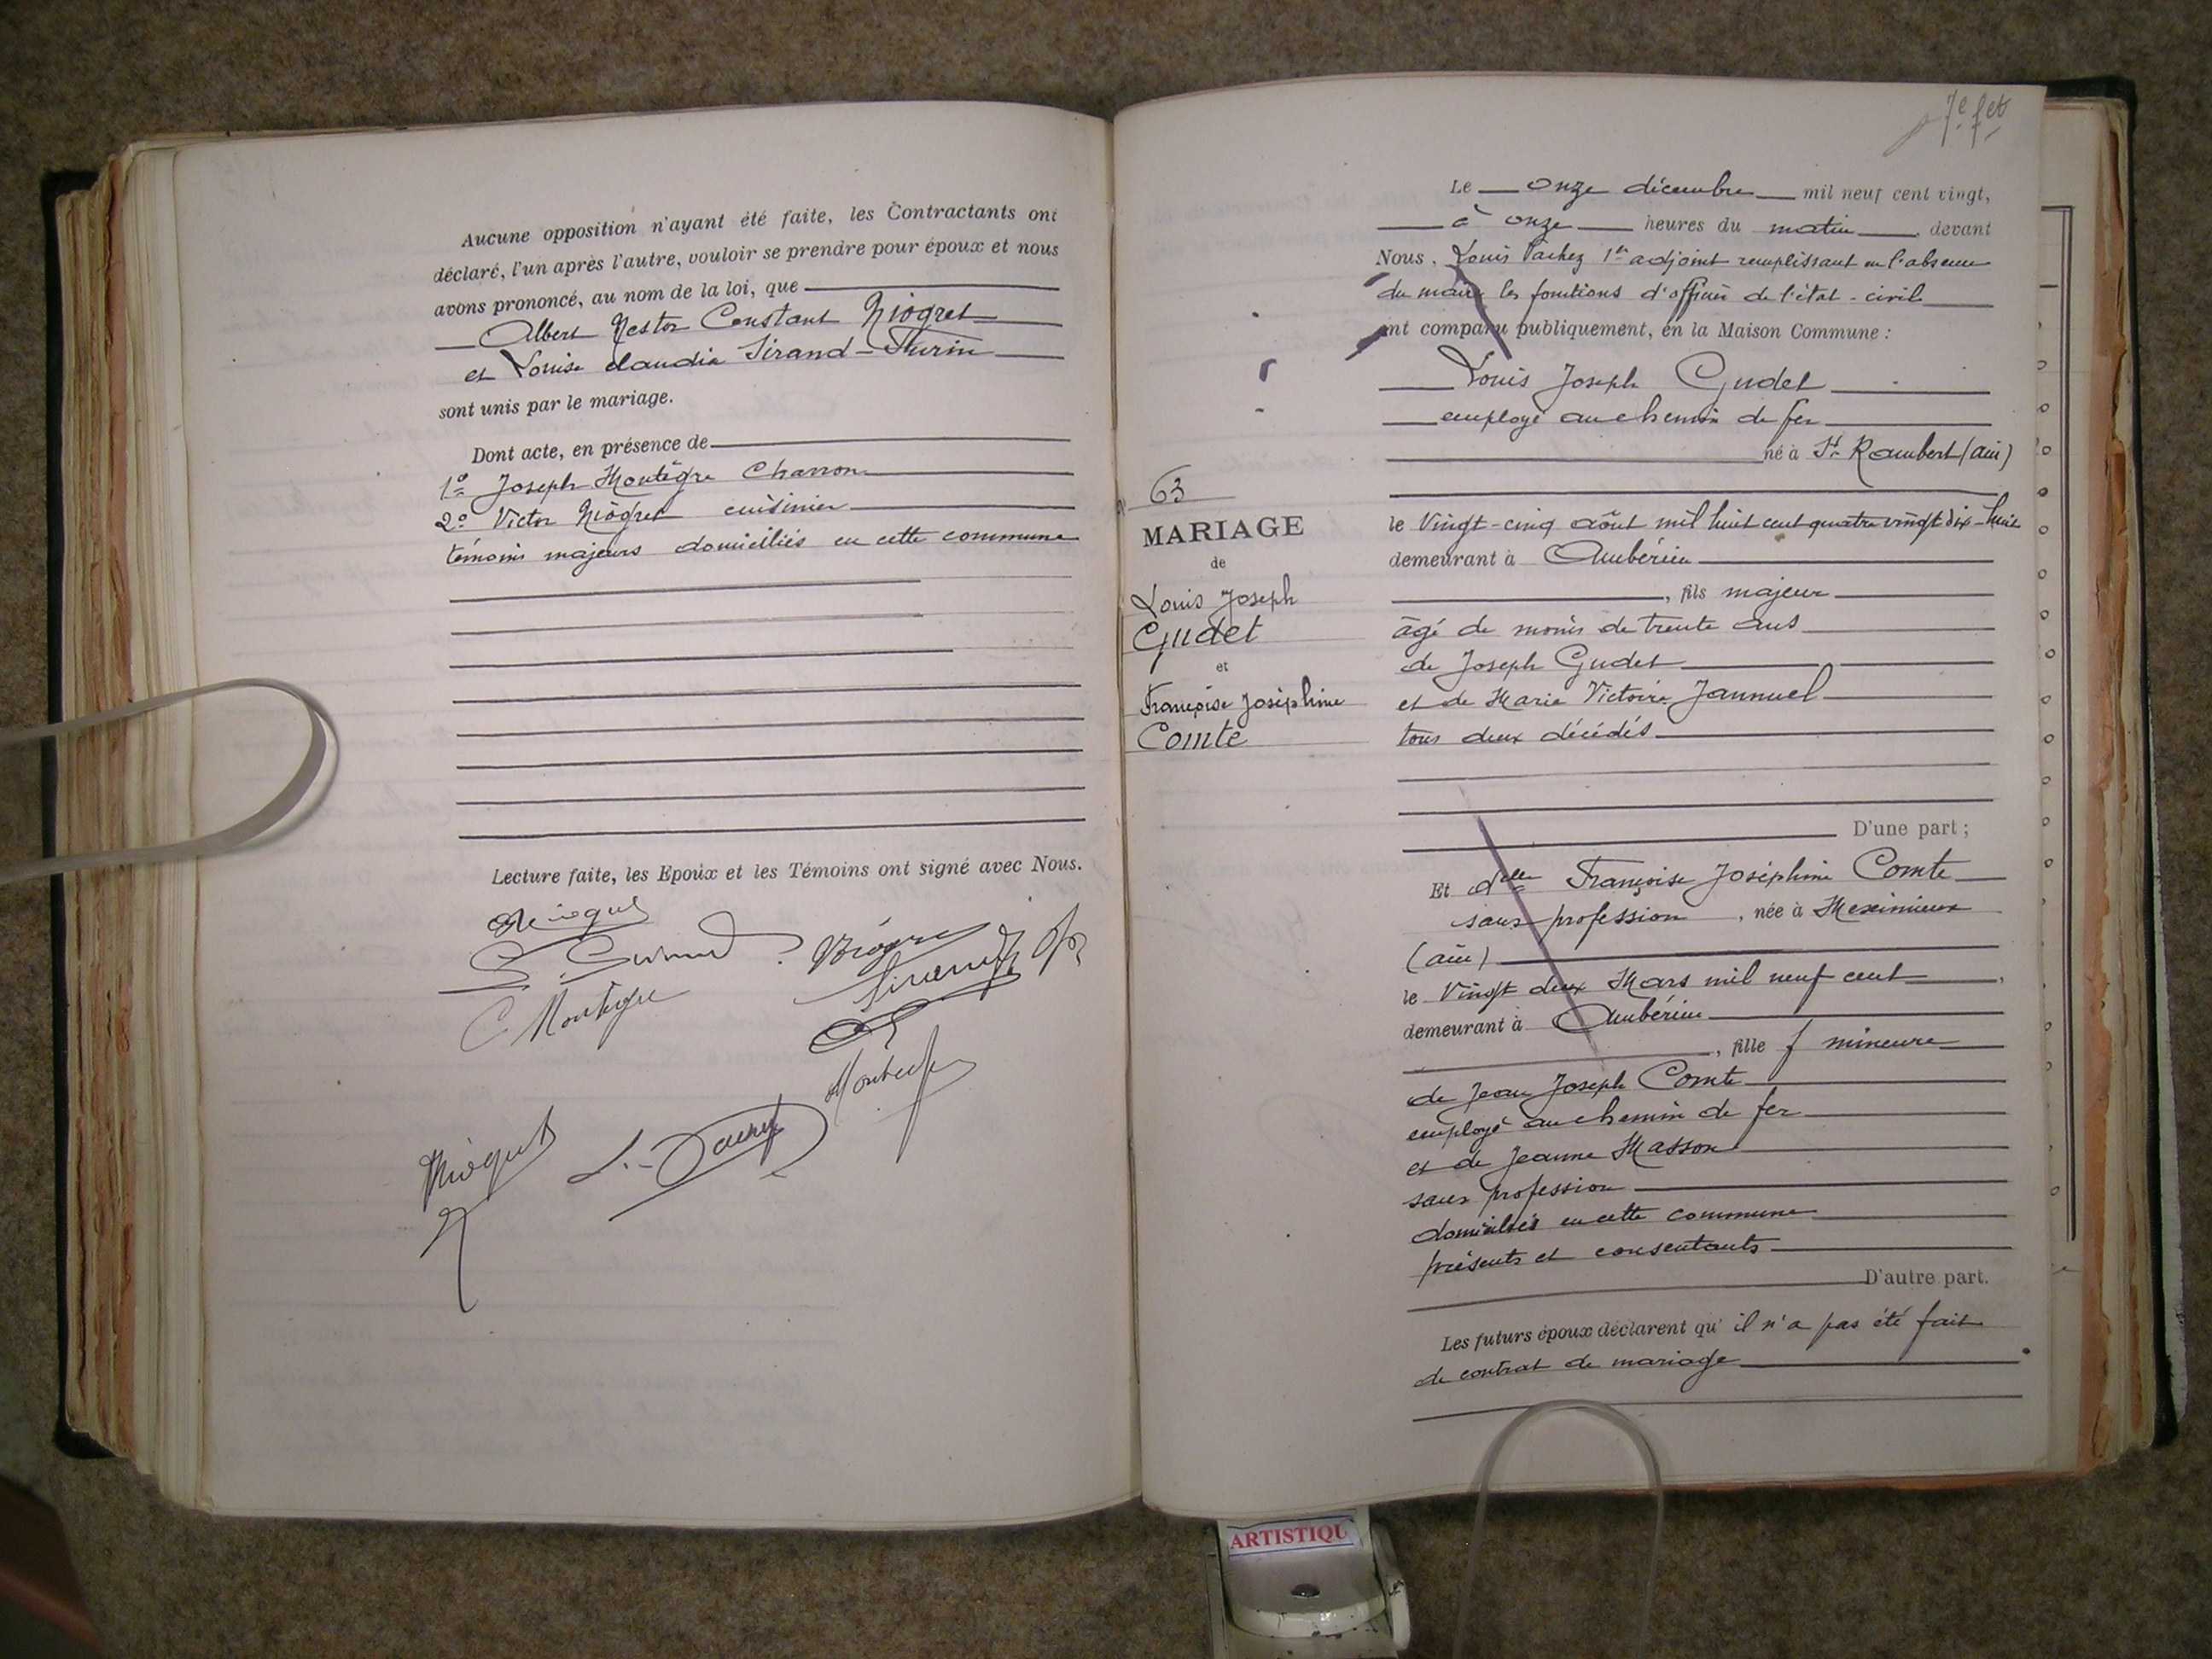 Aucune opposition n'ayant été faite, les Contractants ont
déclaré, l'un après l'autre, vouloir se prendre pour époux et nous
avons prononcé, au nom de la loi, que
Albert Nestor Constant Niogret
et Louise Claudia Sirand-Thurin
sont unis par le mariage.
Dont acte, en présence de
1º Joseph Montègre Charron
2º Victor Niogret cuisinier
témoins majeurs domiciliés en cette commune
Lecture faite, les Epoux et les Témoins ont signé avec Nous.
Niogret
Montègre
Niogret
7e fet
Le onze décembre mil neuf cent vingt,
à onze heures du matin, devant
Nous, Louis 1er adjoint remplissant en l'absence
du maire les fonctions d'officier de l'état-civil
ont comparu publiquement, en la Maison Commune :
Louis Joseph Gudet
employé au chemin de fer
né à St Rambert (ain)
63
MARIAGE
de
Louis Joseph
Gudet
et
Françoise Joséphine
Comte
le Vingt-cinq août mil huit cent quatre vingt dix-huit
demeurant à Ambérieu
, fils majeur
âgé de moins de trente ans
de Joseph Gudet
et de Marie Victoire Jannuel
tous deux décédés
D'une part ;
Et delle Françoise Joséphine Comte
sans profession, née à Meximieux
(ain)
le Vingt deux Mars mil neuf cent
demeurant à Ambérieu
, fille mineure
de Jean Joseph Comte
employé au chemin de fer
et de Jeanne Masson
sans profession
domiciliés en cette commune
présents et consentants
D'autre part.
Les futurs époux déclarent qu'il n'a pas été fait
de contrat de mariage
ARTISTIQU